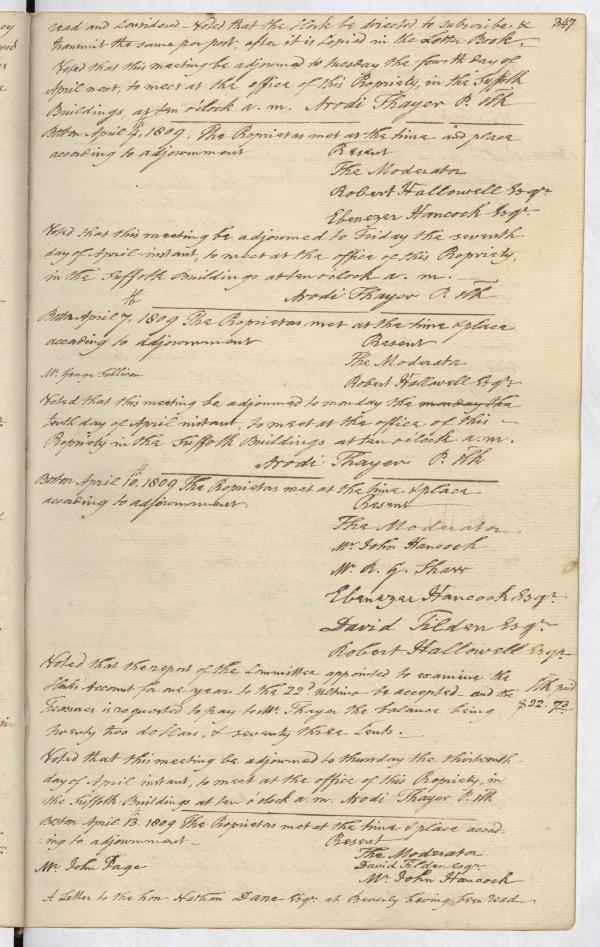 347
read and considered - Voted that the Clerk be directed to subscribe &
transmit the same per post, after it is Copied in the Letter Book.
Voted that this meeting be adjourned to tuesday the fourth day of
April next, to meet at the office of this Propriety, in the Suffolk
Buildings at ten o'clock a. m. Arodi Thayer P. Clk
Boston April 4th, 1809. The Proprietors met at the time and place
according to adjournment
Present
The Moderator
Robert Hallowell Esqr.
Ebenezer Hancock Esqr.
Voted that this meeting be adjourned to Friday the seventh
day of April instant, to meet at the office of this Propriety,
in the Suffolk Buildings at ten o'clock a. m.
Arodi Thayer P. Clk
Boston April 7th, 1809 The Proprietors met at the time & place
according to adjournment
Present
The Moderator
Mr. George Sullivan
Robert Hallowell Esqr.
Voted that this meeting be adjourned to monday the monday the
tenth day of April instant, to meet at the office of this
Propriety in the Suffolk Buildings at ten o'clock a.m.
Arodi Thayer P. Clk
Boston April 10th, 1809 The Proprietors met at the time & place
according to adjournment.
Present
The Moderator
Mr. John Hancock
Mr. R. G. Shaw
Ebenezer Hancock Esqr.
David Tilden Esqr.
Robert Hallowell Esqr.
Voted that the report of the Committee appointed to examine the
Clerks Account for one year to the 22d Ultimo be accepted and the
Treasurer is requested to pay to Mr. Thayer the balance being
twenty two dollars, & seventy three Cents.
Clk paid
$22.73
Voted that this meeting be adjourned to thursday the thirteenth
day of April instant, to meet at the office of this Propriety, in
the Suffolk Buildings at ten o'clock a m. Arodi Thayer P. Clk
Boston April 13th. 1809 The Proprietors met at the time & place accord-
-ing to adjournment -
Present
The Moderator
David Tilden Esqr.
Mr. John Page
Mr. John Hancock
A Letter to the hon. Nathan Dane Esqr. at Beverly having been read